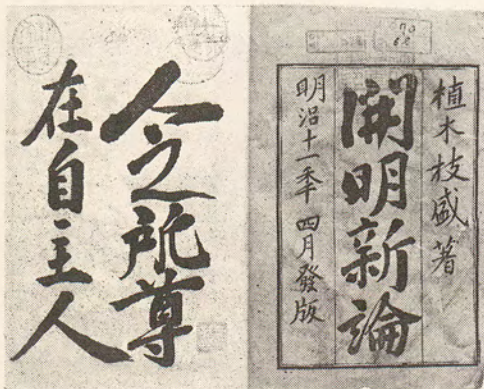 植木枝盛著
開明新論
明治十一年四月發版
人之所尊
在自主人